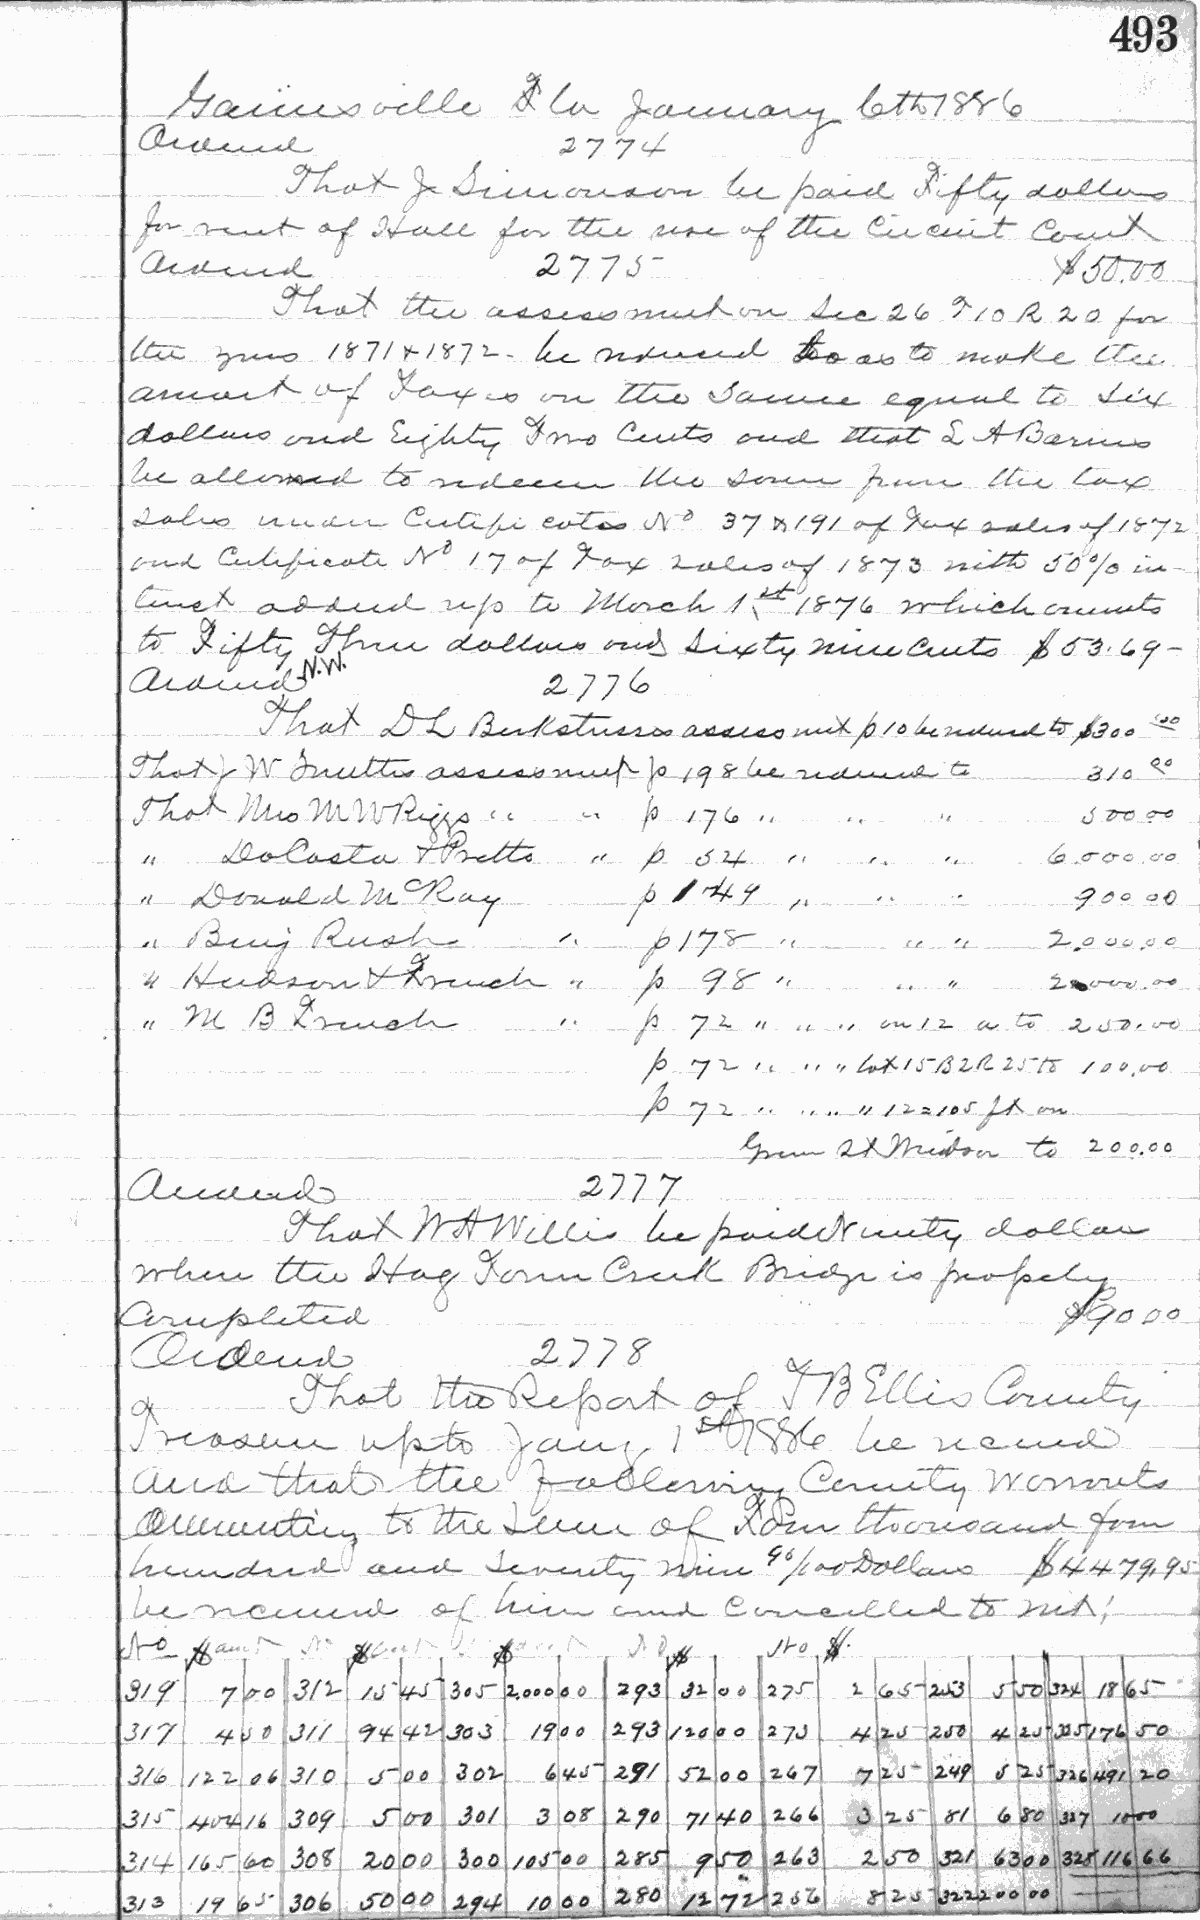 493
Gainesville Fla January 6th 1886
Ordered 2774
That J Simonson be paid Fifty dollars
for rent of Hall for the use of the Circuit Court
Ordered 2775 $50.00
That the assessment on Sec 26 T 10 R 20 for
the years 1871 & 1872 - be reduced so as to make the
amount of Taxes on the same equal to six
dollars and Eighty Two Cents and that L A Barnes
be allowed to redeem the same from the tax
sales under Certificates No 37 & 191 of Tax sales of 1872
and Certificate No 17 of Tax sales of 1873 with 50% in-
terest added up to March 1st 1876 which amounts
to Fifty Three dollars and Sixty nine Cents $53.69-
Ordered N.W. 2776
That D L assessment p 10 be reduced to $300 00
That J W assessment p 198 be reduced to 310 00
That Mrs M W Riggs " " p 176 " " " 500.00
" DaCosta & Pretts " p 54 " " " 6.000.00
" Donald McRay p 149 " " " 900 00
" Benj Rush " p 178 " " " 2.000.00
" Hudson & French " p 98 " " " 2.000.00
" M B French " p 72 " " " on 12 a to 250.00
p 72 " " " lot 15 B 2 R 25 to 100.00
p 72 " " " " 12 = 105 ft on
to 200.00
Ordered 2777
That W H Willis be paid Ninety dollars
when the Hog Town Creek Bridge is properly
Completed $90.00
Ordered 2778
That the Report of T B Ellis County
Treasurer up to Jany 1st 1886 be received
and that the following County Warrants
Amounting to the Sum of Four thousand four
hundred and seventy nine 95/100 Dollars $4479.95
be received of him and Cancelled to wit;
No $ amt No $ amt $ amt No $ No $
319 7 00 312 15 45 305 2000 00 293 32 00 275 2 65 253 5 50 324 18 65
317 4 50 311 94 42 303 19 00 293 120 00 273 4 25 250 4 25 325 176 50
316 122 06 310 5 00 302 6 45 291 52 00 267 7 25 249 5 25 326 491 20
315 404 16 309 5 00 301 3 08 290 71 40 266 3 25 81 6 80 327 10 00
314 165 60 308 20 00 300 105 00 285 9 50 263 2 50 321 63 00 328 116 66
313 19 65 306 50 00 294 10 00 280 12 72 256 8 25 322 200 00